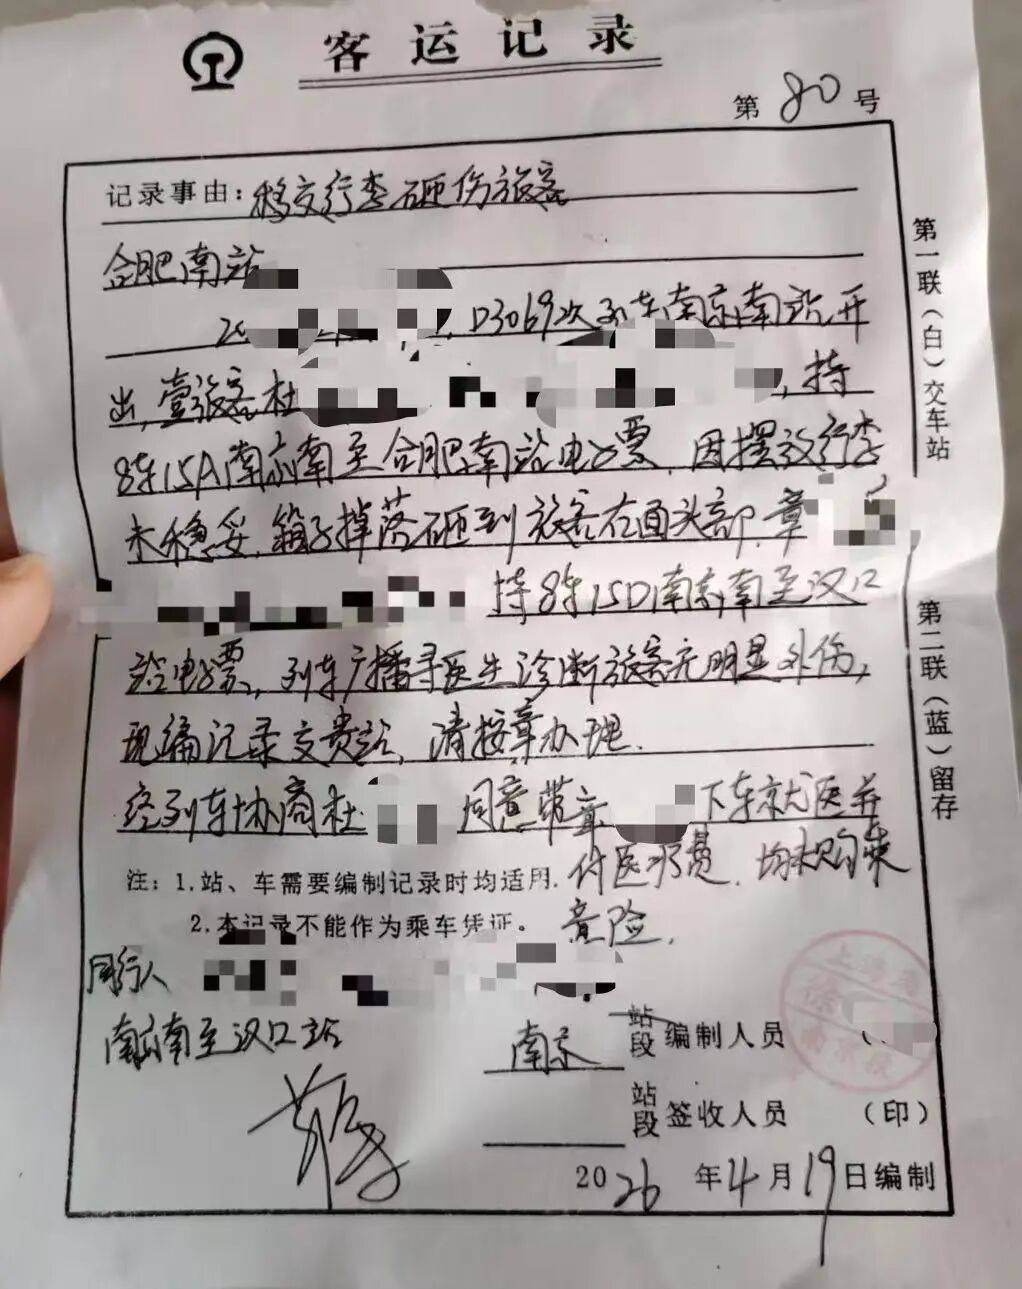 客运记录
第 80 号
记录事由：移交行李砸伤旅客
合肥南站
D3069次列车南京南站开
出,壹旅客杜 ,持
8车15A南京南至合肥南站电子票,因摆放行李
未稳妥,箱子掉落砸到旅客右面头部,章
持8车15D南京南至汉口
站电子票,列车广播寻医生诊断旅客无明显外伤,
现编记录交贵站,请按章办理.
经列车协商杜 同意带章 下车就医并
付医疗费.均未购乘
意险.
注：1.站、车需要编制记录时均适用.
2.本记录不能作为乘车凭证。
同行人
南京南至汉口站
南京 站段 编制人员
站段 签收人员 （印）
2026 年 4 月 19 日编制
第一联（白）交车站
第二联（蓝）留存
上海 南京段